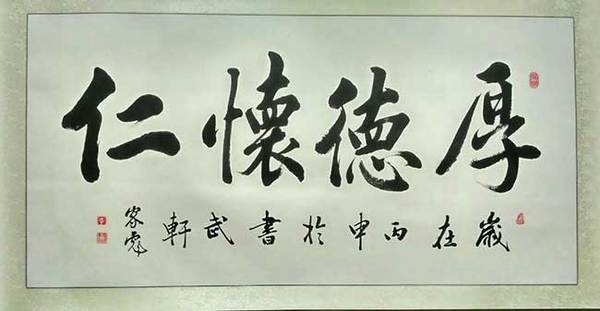 厚德懷仁
歲在丙申於書武軒
家彪